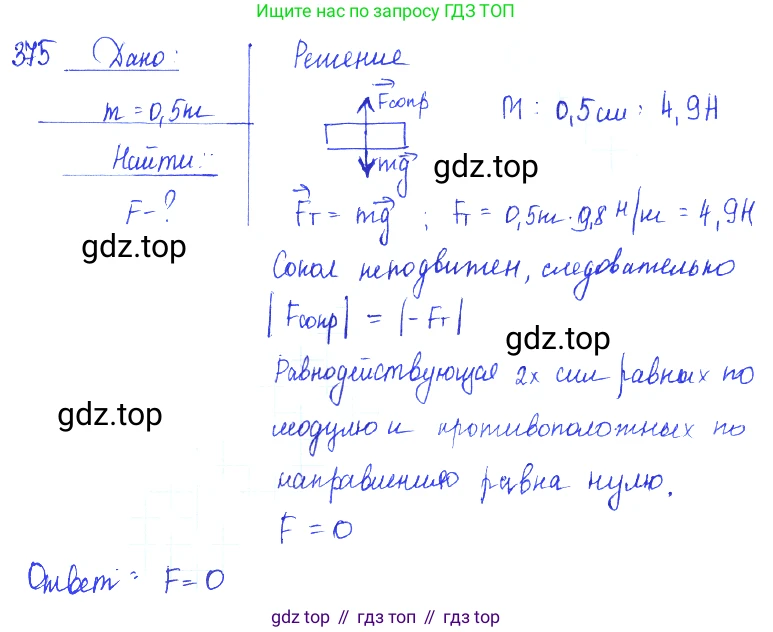 Ищите нас по запросу ГДЗ ТОП
375 Дано:
m = 0,5кг
Найти:
F - ?
Решение
Fсопр
mg
М: 0,5см : 4,9Н
gdz.top
Fт = mg ; Fт = 0,5кг · 9,8 Н/кг = 4,9Н
gdz.top
Сокол неподвижен, следовательно
|Fсопр| = |-Fт|
gdz.top
Равнодействующая 2х сил равных по
gdz.top
модулю и противоположных по
направлению равна нулю.
F = 0
Ответ: F = 0
gdz top // гдз топ // gdz top